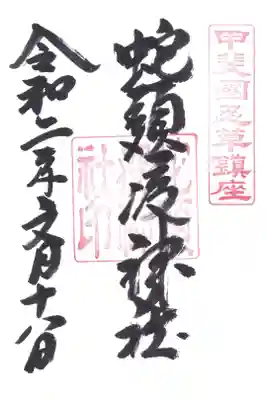 甲斐國忍草鎮座
蛇頭疫神社
令和二年六月十八日
社印